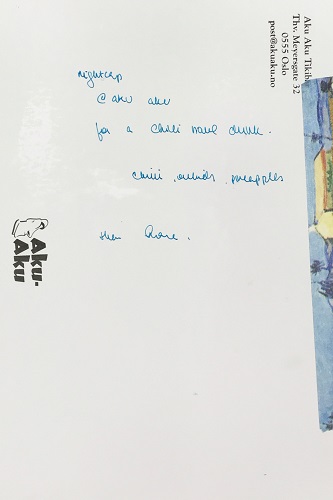 Aku Aku Tikib
Thv. Meyersgate 32
0555 Oslo
post@akuaku.no
nightcap
@ aku aku
for a chilli drink.
chilli, orchids, pineapples
then home.
Aku-
Aku